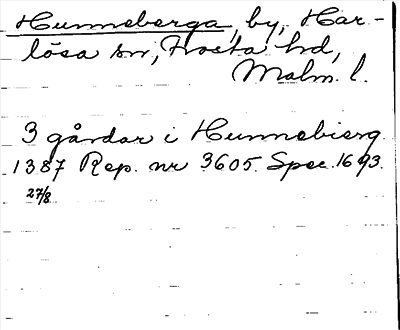 Hunneberga, by, Har-
lösa sn, Frosta hd,
Malm. l.
3 gårdar i Hunnebierg
1387 Rep. nr 3605. Spec. 1693.
27/8